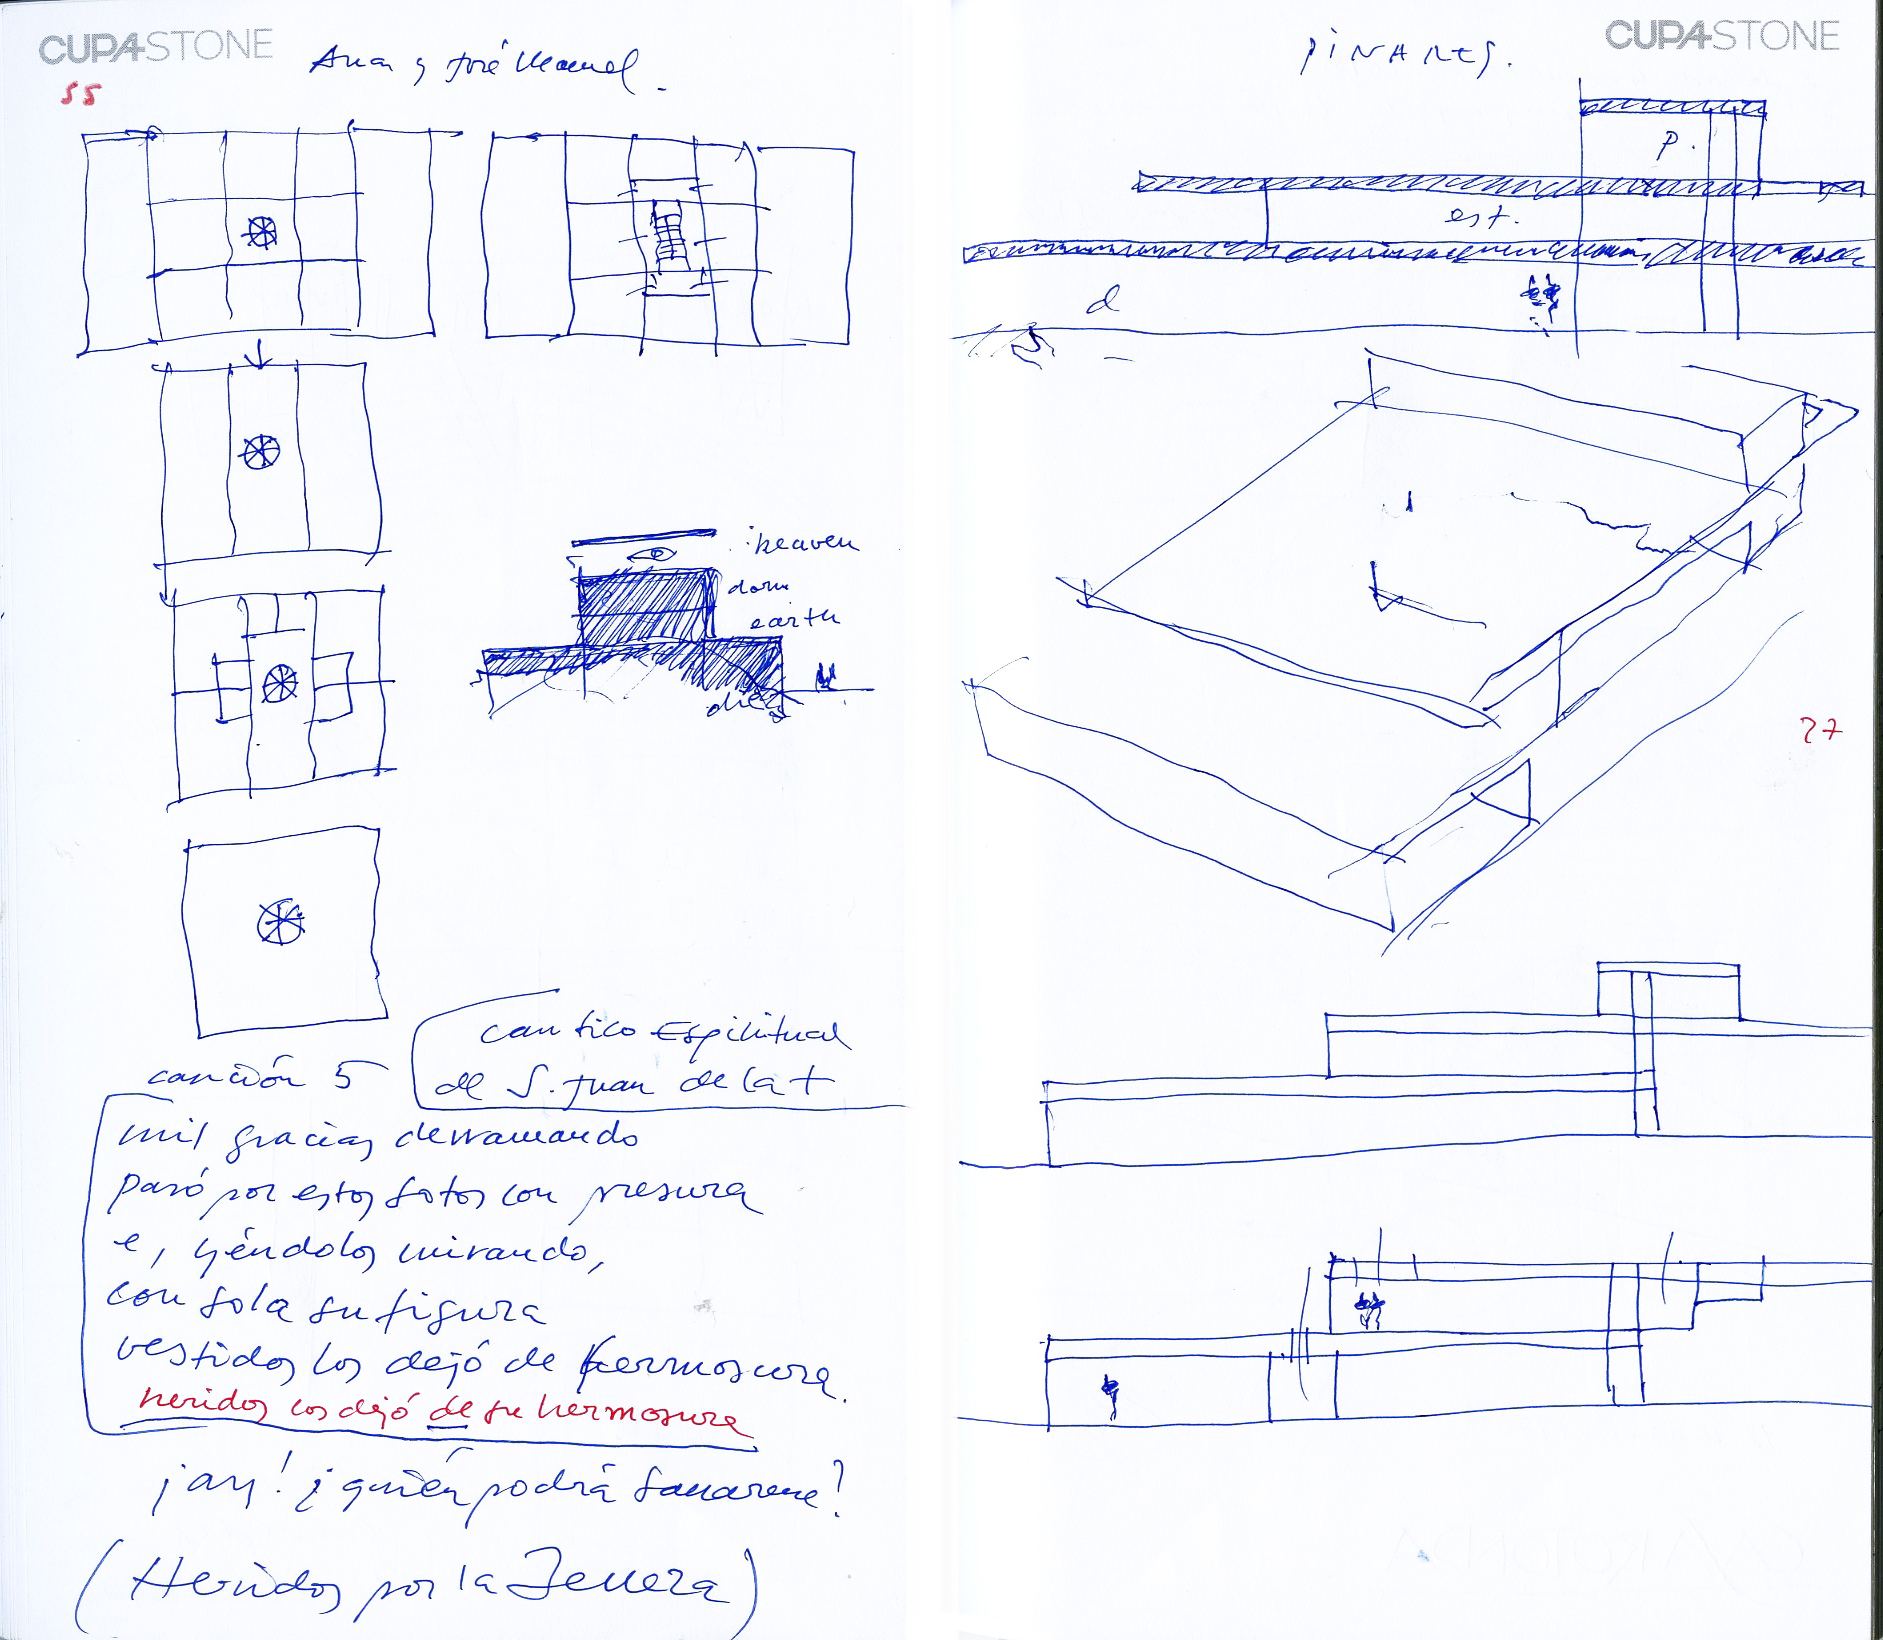 CUPASTONE
Ana y José Manuel.
55
heaven
earth
cantico Espiritual
de S. Juan de la +
canción 5
mil gracias derramando
pasó por estos sotos con presura
e, yéndolos mirando,
con sola su figura
vestidos los dejó de hermosura.
heridos los dejó de su hermosura
¡ay! ¿quién podrá sanarme?
(Heridos por la Belleza)
CUPASTONE
PINARES.
P.
est.
d
27